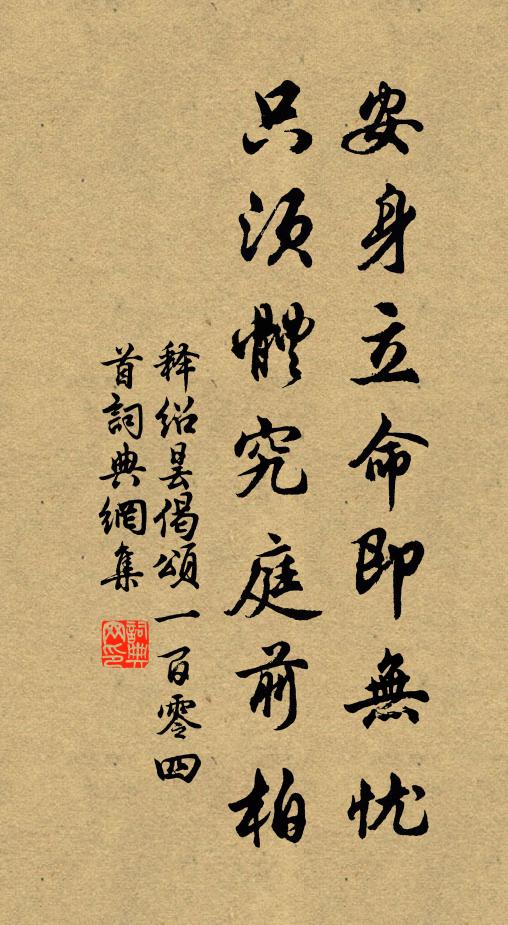 安身立命即無忧
只须體究庭前柏
释绍昙偈頌一百零四
首詞典網集
詞典
网印